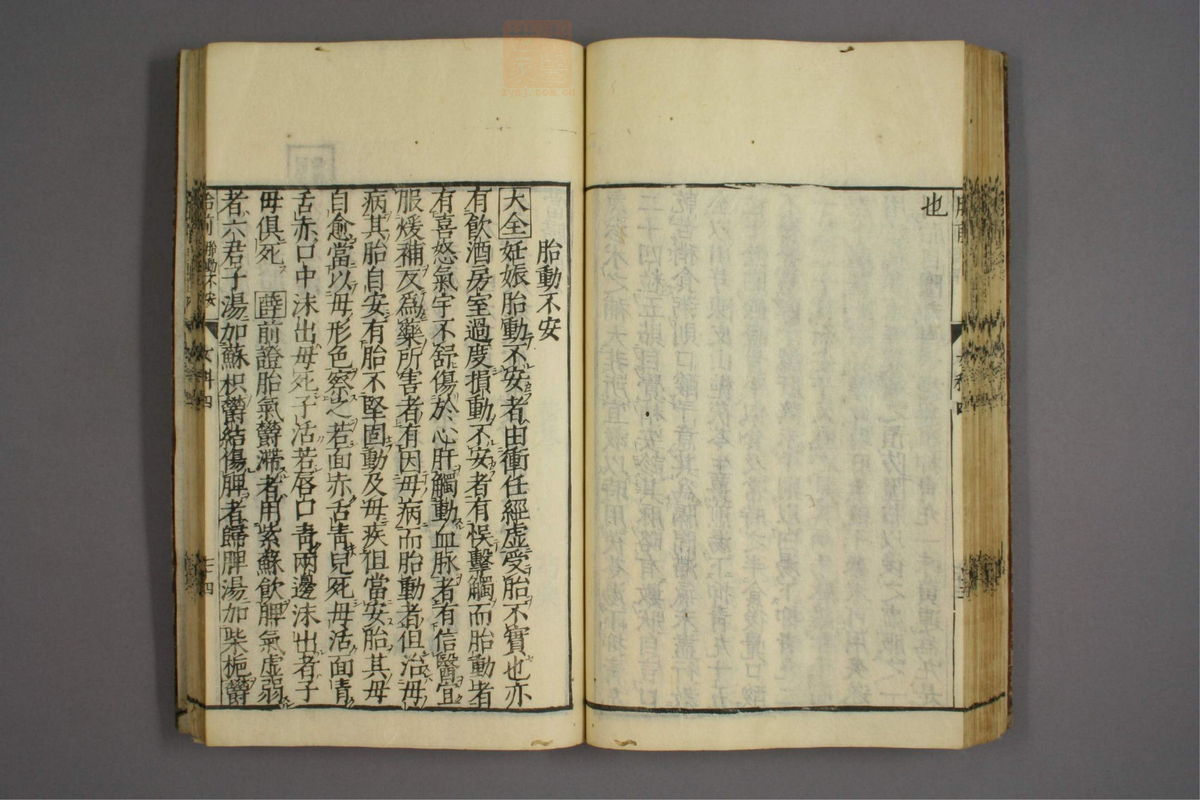 也
胎動不安
大全妊娠胎動不安者由衝任經虚受胎不實也亦
有飲酒房室過度損動不安者有悞擊觸而胎動者
有喜怒氣宇不舒傷於心肝觸動血脉者有信醫宜
服煖補反為藥所害者有因母病而胎動者但治母
病其胎自安有胎不堅固動及母疾但當安胎其母
自愈當以母形色察之若面赤舌青兒死母活面青
舌赤口中沫出母死子活若唇口青兩邊沫出者子
母俱死 薛前證胎氣欝滯者用紫蘇飲脾氣虚弱
者六君子湯加蘇枳欝結傷脾者歸脾湯加柴梔欝
胎前 胎動不安 女科四